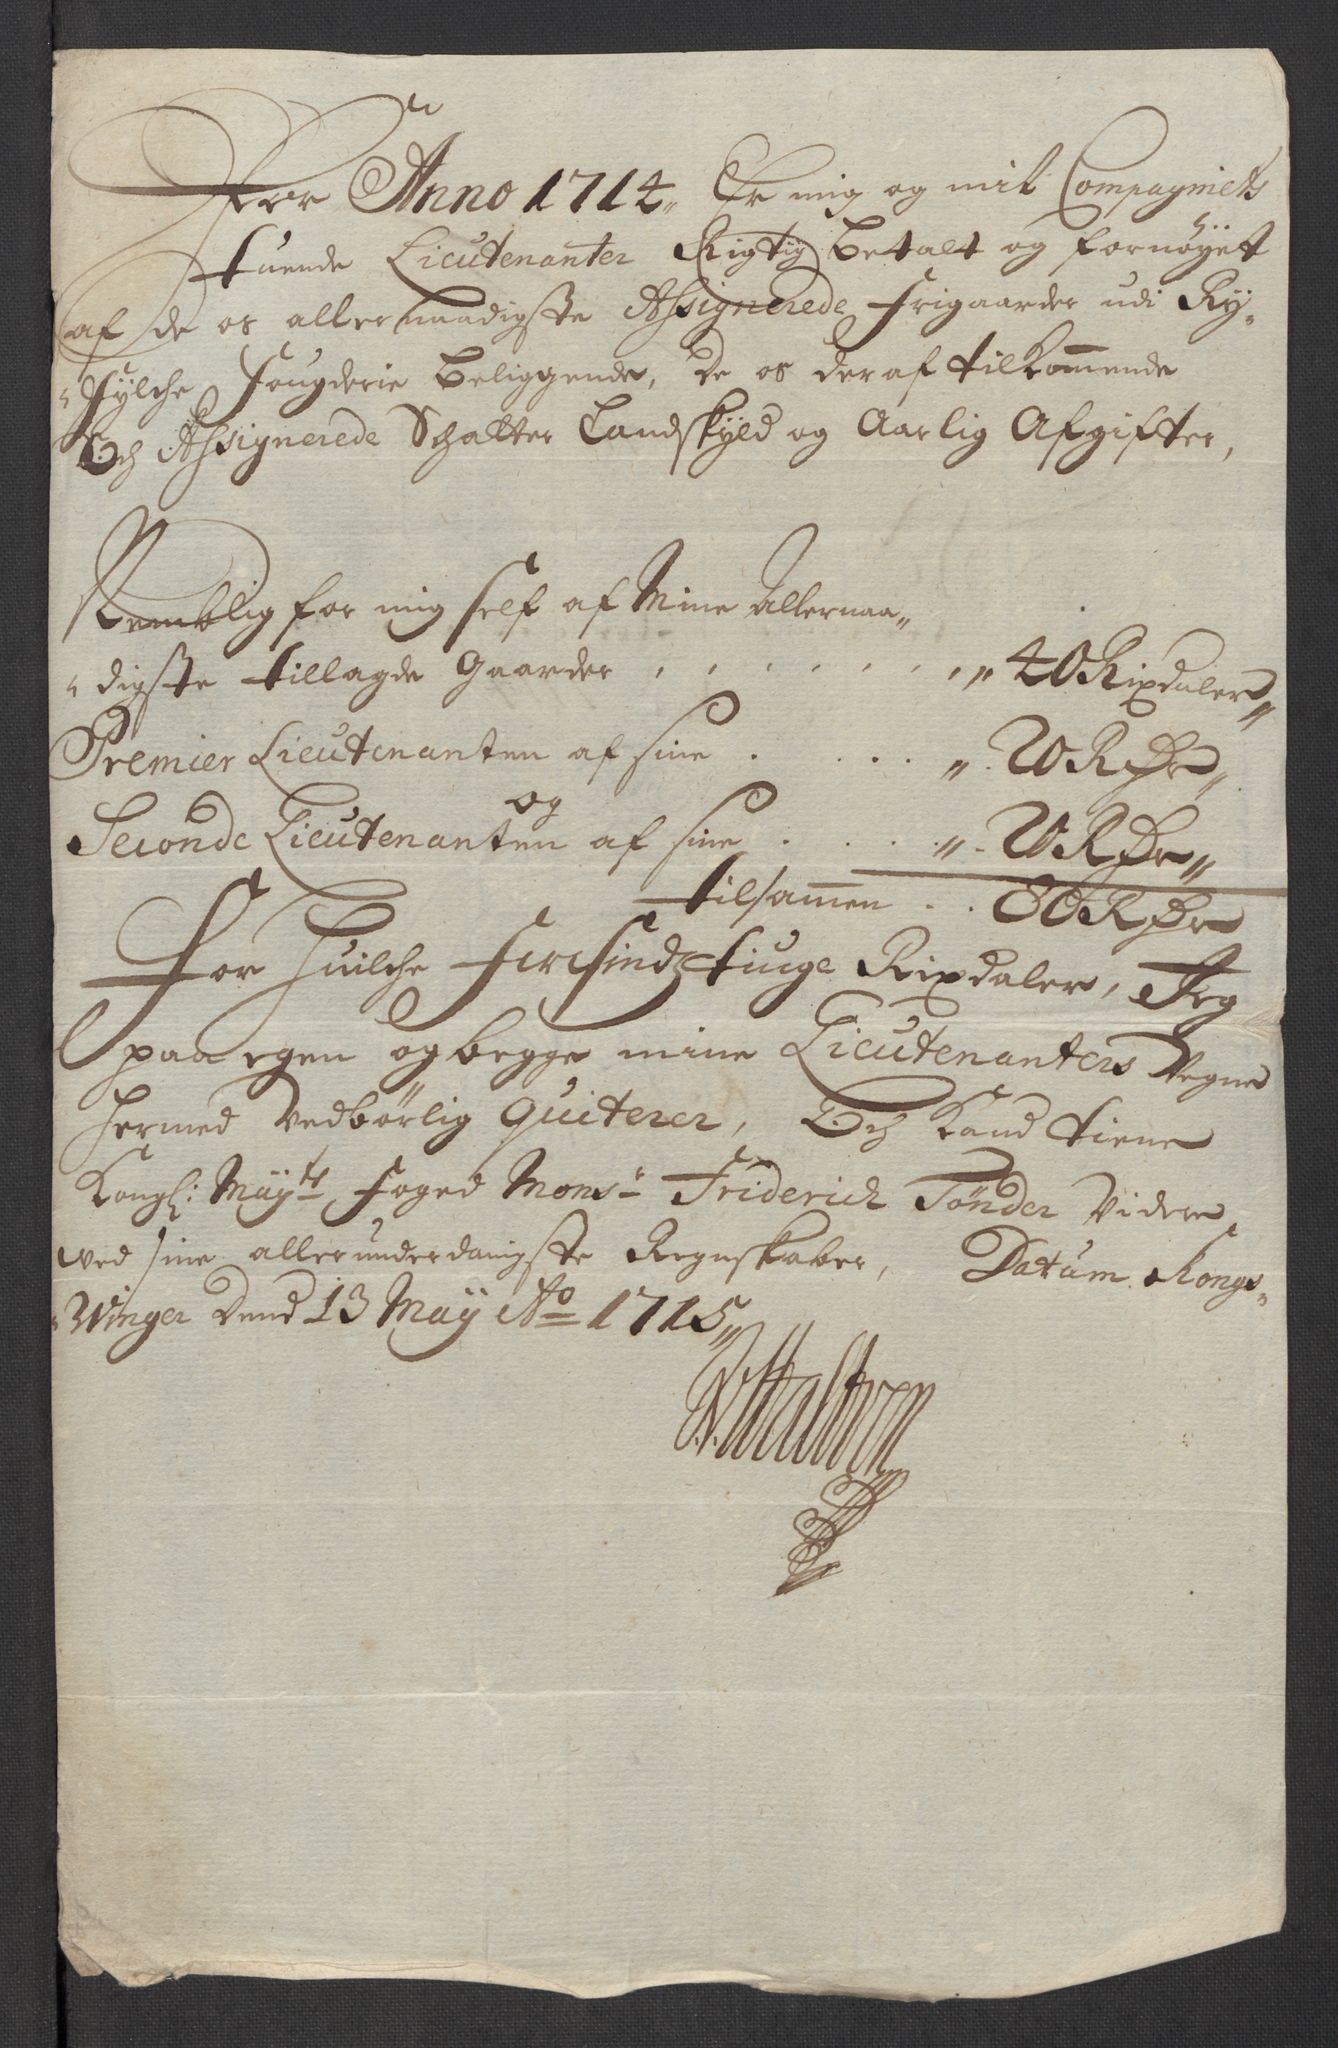 For Anno 1714. Er mig og mit Compagniets
tuende Lieutenanter Rigtig betalt og fornøyet
af de os allernaadigste Assignerede frigaarder udi Ry-
-fylche fougderie beliggende, De os deraf tilkom̄ende
Och Assignerede Schatter Landskyld og Aarlig Afgifter,
Nemblig for mig self af Mine Allernaa-
-digste tillagde gaarder . . . . . . . . 40 Rixdaler
Premier Lieutenanten af sine . . . . . 20 R Dr
og
Seconde Lieutenanten af sine . . . . 20 R Dr
tilsam̄en . . 80 R Dr
For huilche firesindztiuge Rixdaler, Jeg
paa egen og begge mine Lieutenanters Vegne
hermed Vedbörlig quiterer, Och Kand tiene
Kongl: Maytz foged Monsr Friderich Tönder Videre
ved sine allerunderdanigste Regnskaber, Datum Kongs-
-Winger Dend 13 May Ao 1715